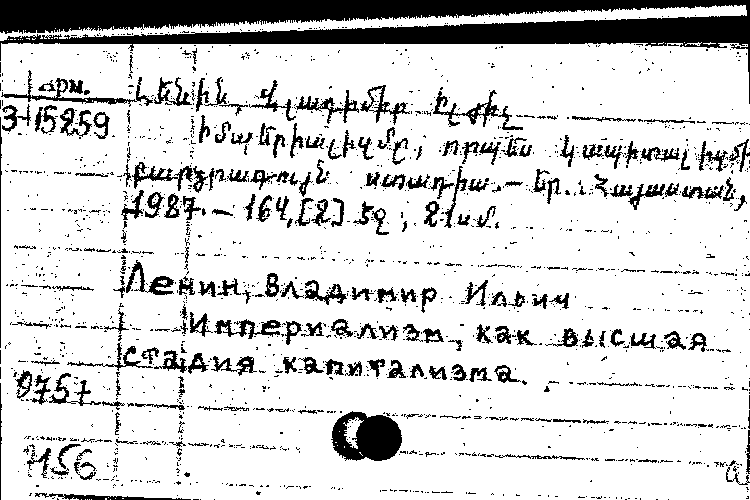 Арм.
З-15259
Լենին, Վլադիմիր Իլյիչ
Իմպերիալիզմը, որպես կապիտալիզմի
բարձրագույն ստադիա. — Եր.: Հայաստան,
1987. — 164,[2] էջ ; 21 սմ.
Ленин, Владимир Ильич
Империализм, как высшая
стадия капитализма.
9757
1156